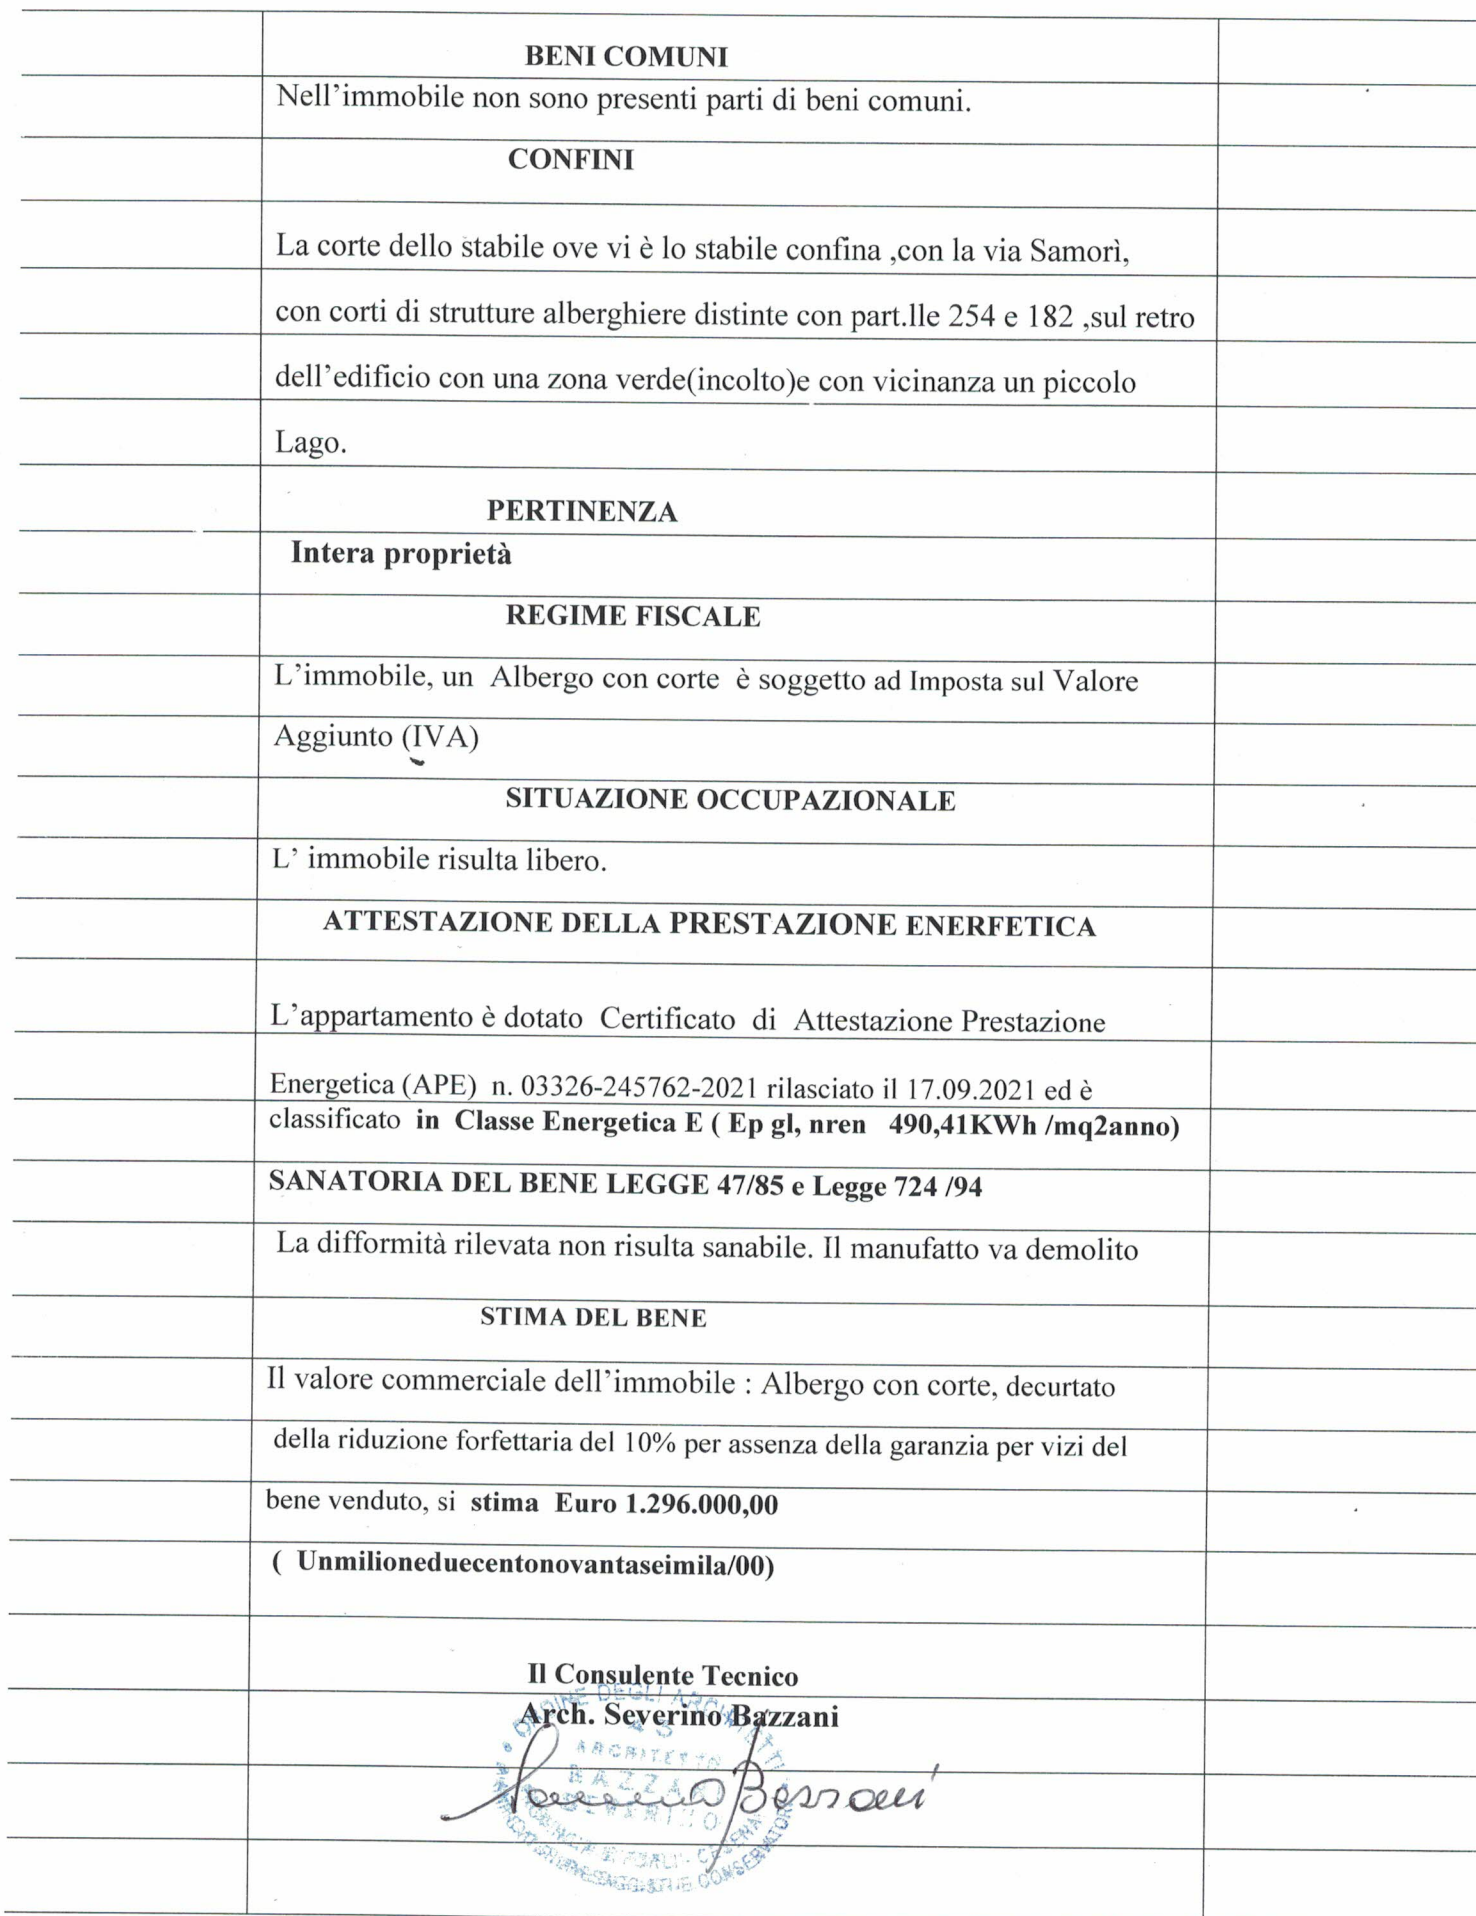 BENI COMUNI
Nell’immobile non sono presenti parti di beni comuni.
CONFINI
La corte dello stabile ove vi è lo stabile confina ,con la via Samorì,
con corti di strutture alberghiere distinte con part.lle 254 e 182 ,sul retro
dell’edificio con una zona verde(incolto)e con vicinanza un piccolo
Lago.
PERTINENZA
Intera proprietà
REGIME FISCALE
L’immobile, un Albergo con corte è soggetto ad Imposta sul Valore
Aggiunto (IVA)
SITUAZIONE OCCUPAZIONALE
L’ immobile risulta libero.
ATTESTAZIONE DELLA PRESTAZIONE ENERFETICA
L’appartamento è dotato Certificato di Attestazione Prestazione
Energetica (APE) n. 03326-245762-2021 rilasciato il 17.09.2021 ed è
classificato in Classe Energetica E ( Ep gl, nren 490,41KWh /mq2anno)
SANATORIA DEL BENE LEGGE 47/85 e Legge 724 /94
La difformità rilevata non risulta sanabile. Il manufatto va demolito
STIMA DEL BENE
Il valore commerciale dell’immobile : Albergo con corte, decurtato
della riduzione forfettaria del 10% per assenza della garanzia per vizi del
bene venduto, si stima Euro 1.296.000,00
( Unmilioneduecentonovantaseimila/00)
Il Consulente Tecnico
Arch. Severino Bazzani
ORDINE DEGLI ARCHITETTI
ARCHITETTO
BAZZANI
SEVERINO